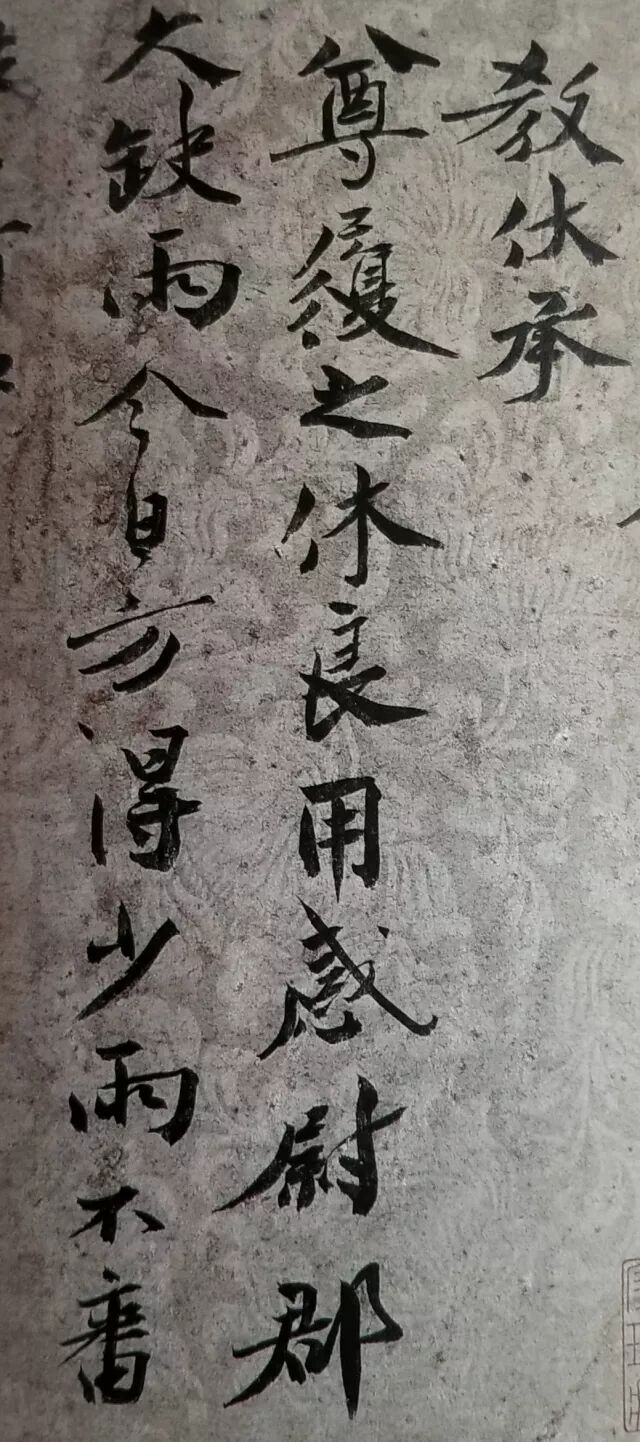 教休承
尊履之休良用感尉郡
大缺雨今日方得少雨不審